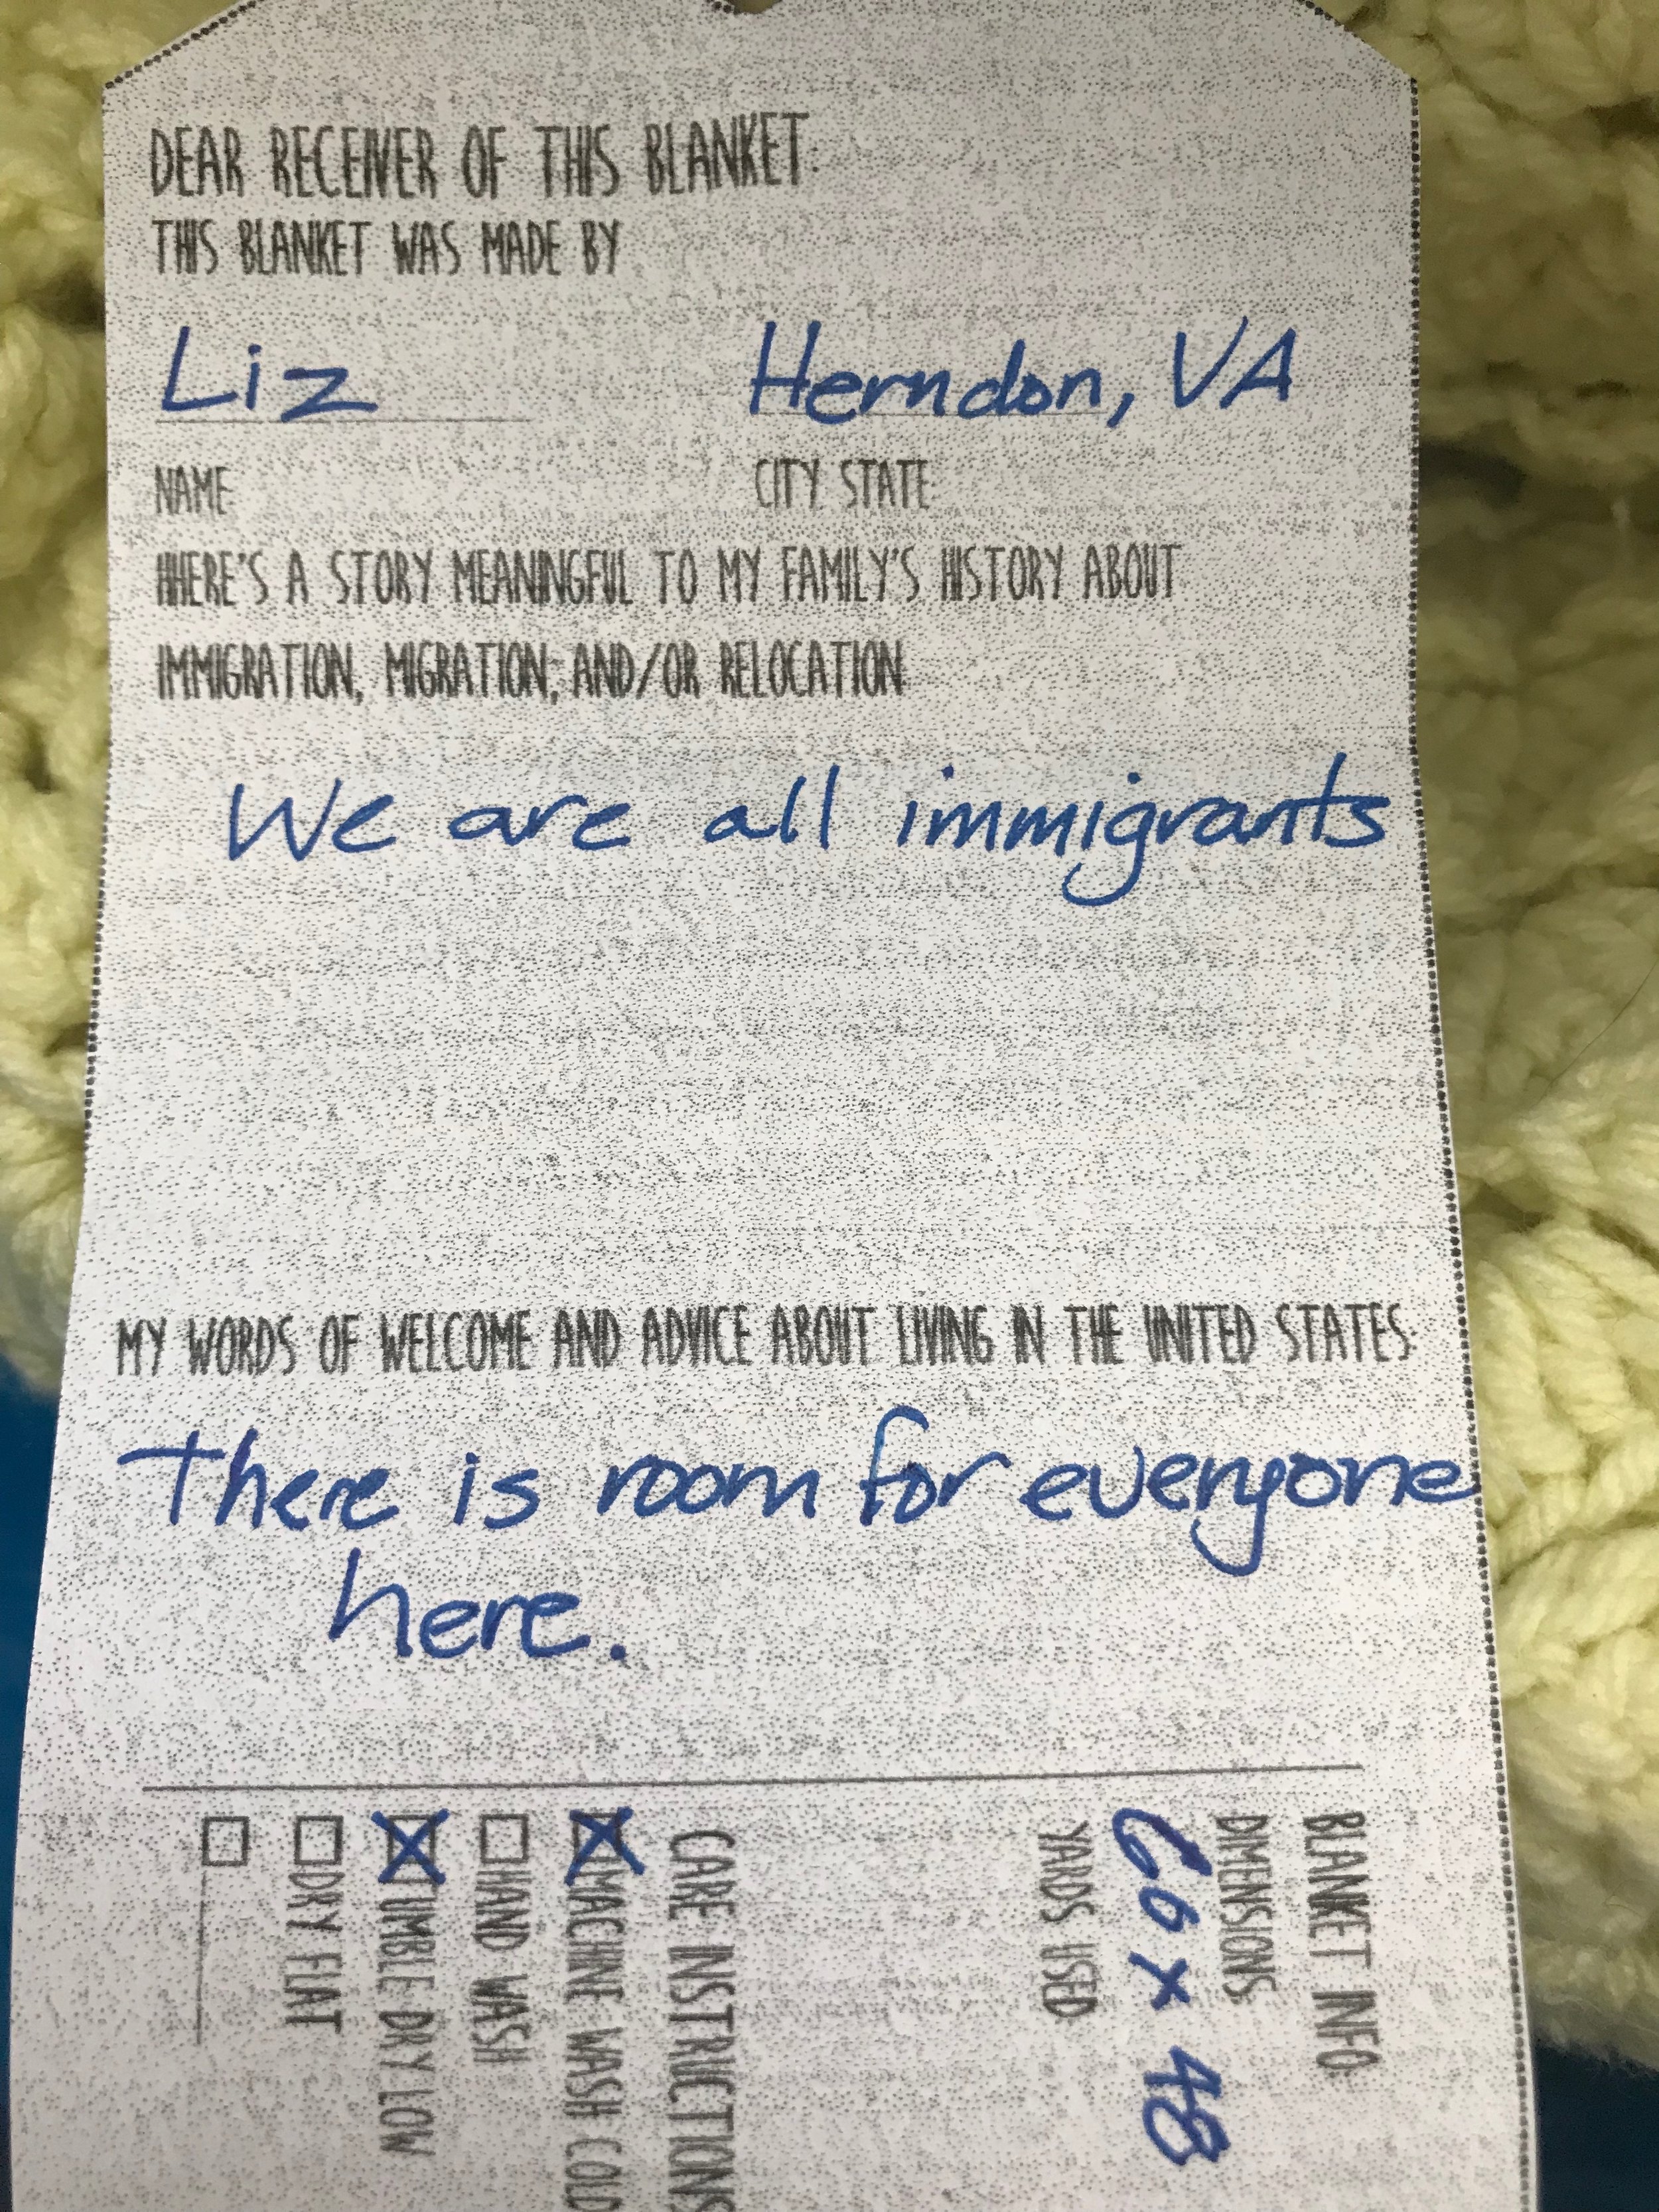 DEAR RECEIVER OF THIS BLANKET:
THIS BLANKET WAS MADE BY
Liz Herndon, VA
NAME CITY STATE
HERE'S A STORY MEANINGFUL TO MY FAMILY'S HISTORY ABOUT
IMMIGRATION, MIGRATION, AND/OR RELOCATION
We are all immigrants
MY WORDS OF WELCOME AND ADVICE ABOUT LIVING IN THE UNITED STATES:
There is room for everyone
here.
BLANKET INFO
DIMENSIONS
60 x 48
YARDS USED
CARE INSTRUCTIONS
MACHINE WASH COLD
HAND WASH
TUMBLE DRY LOW
DRY FLAT